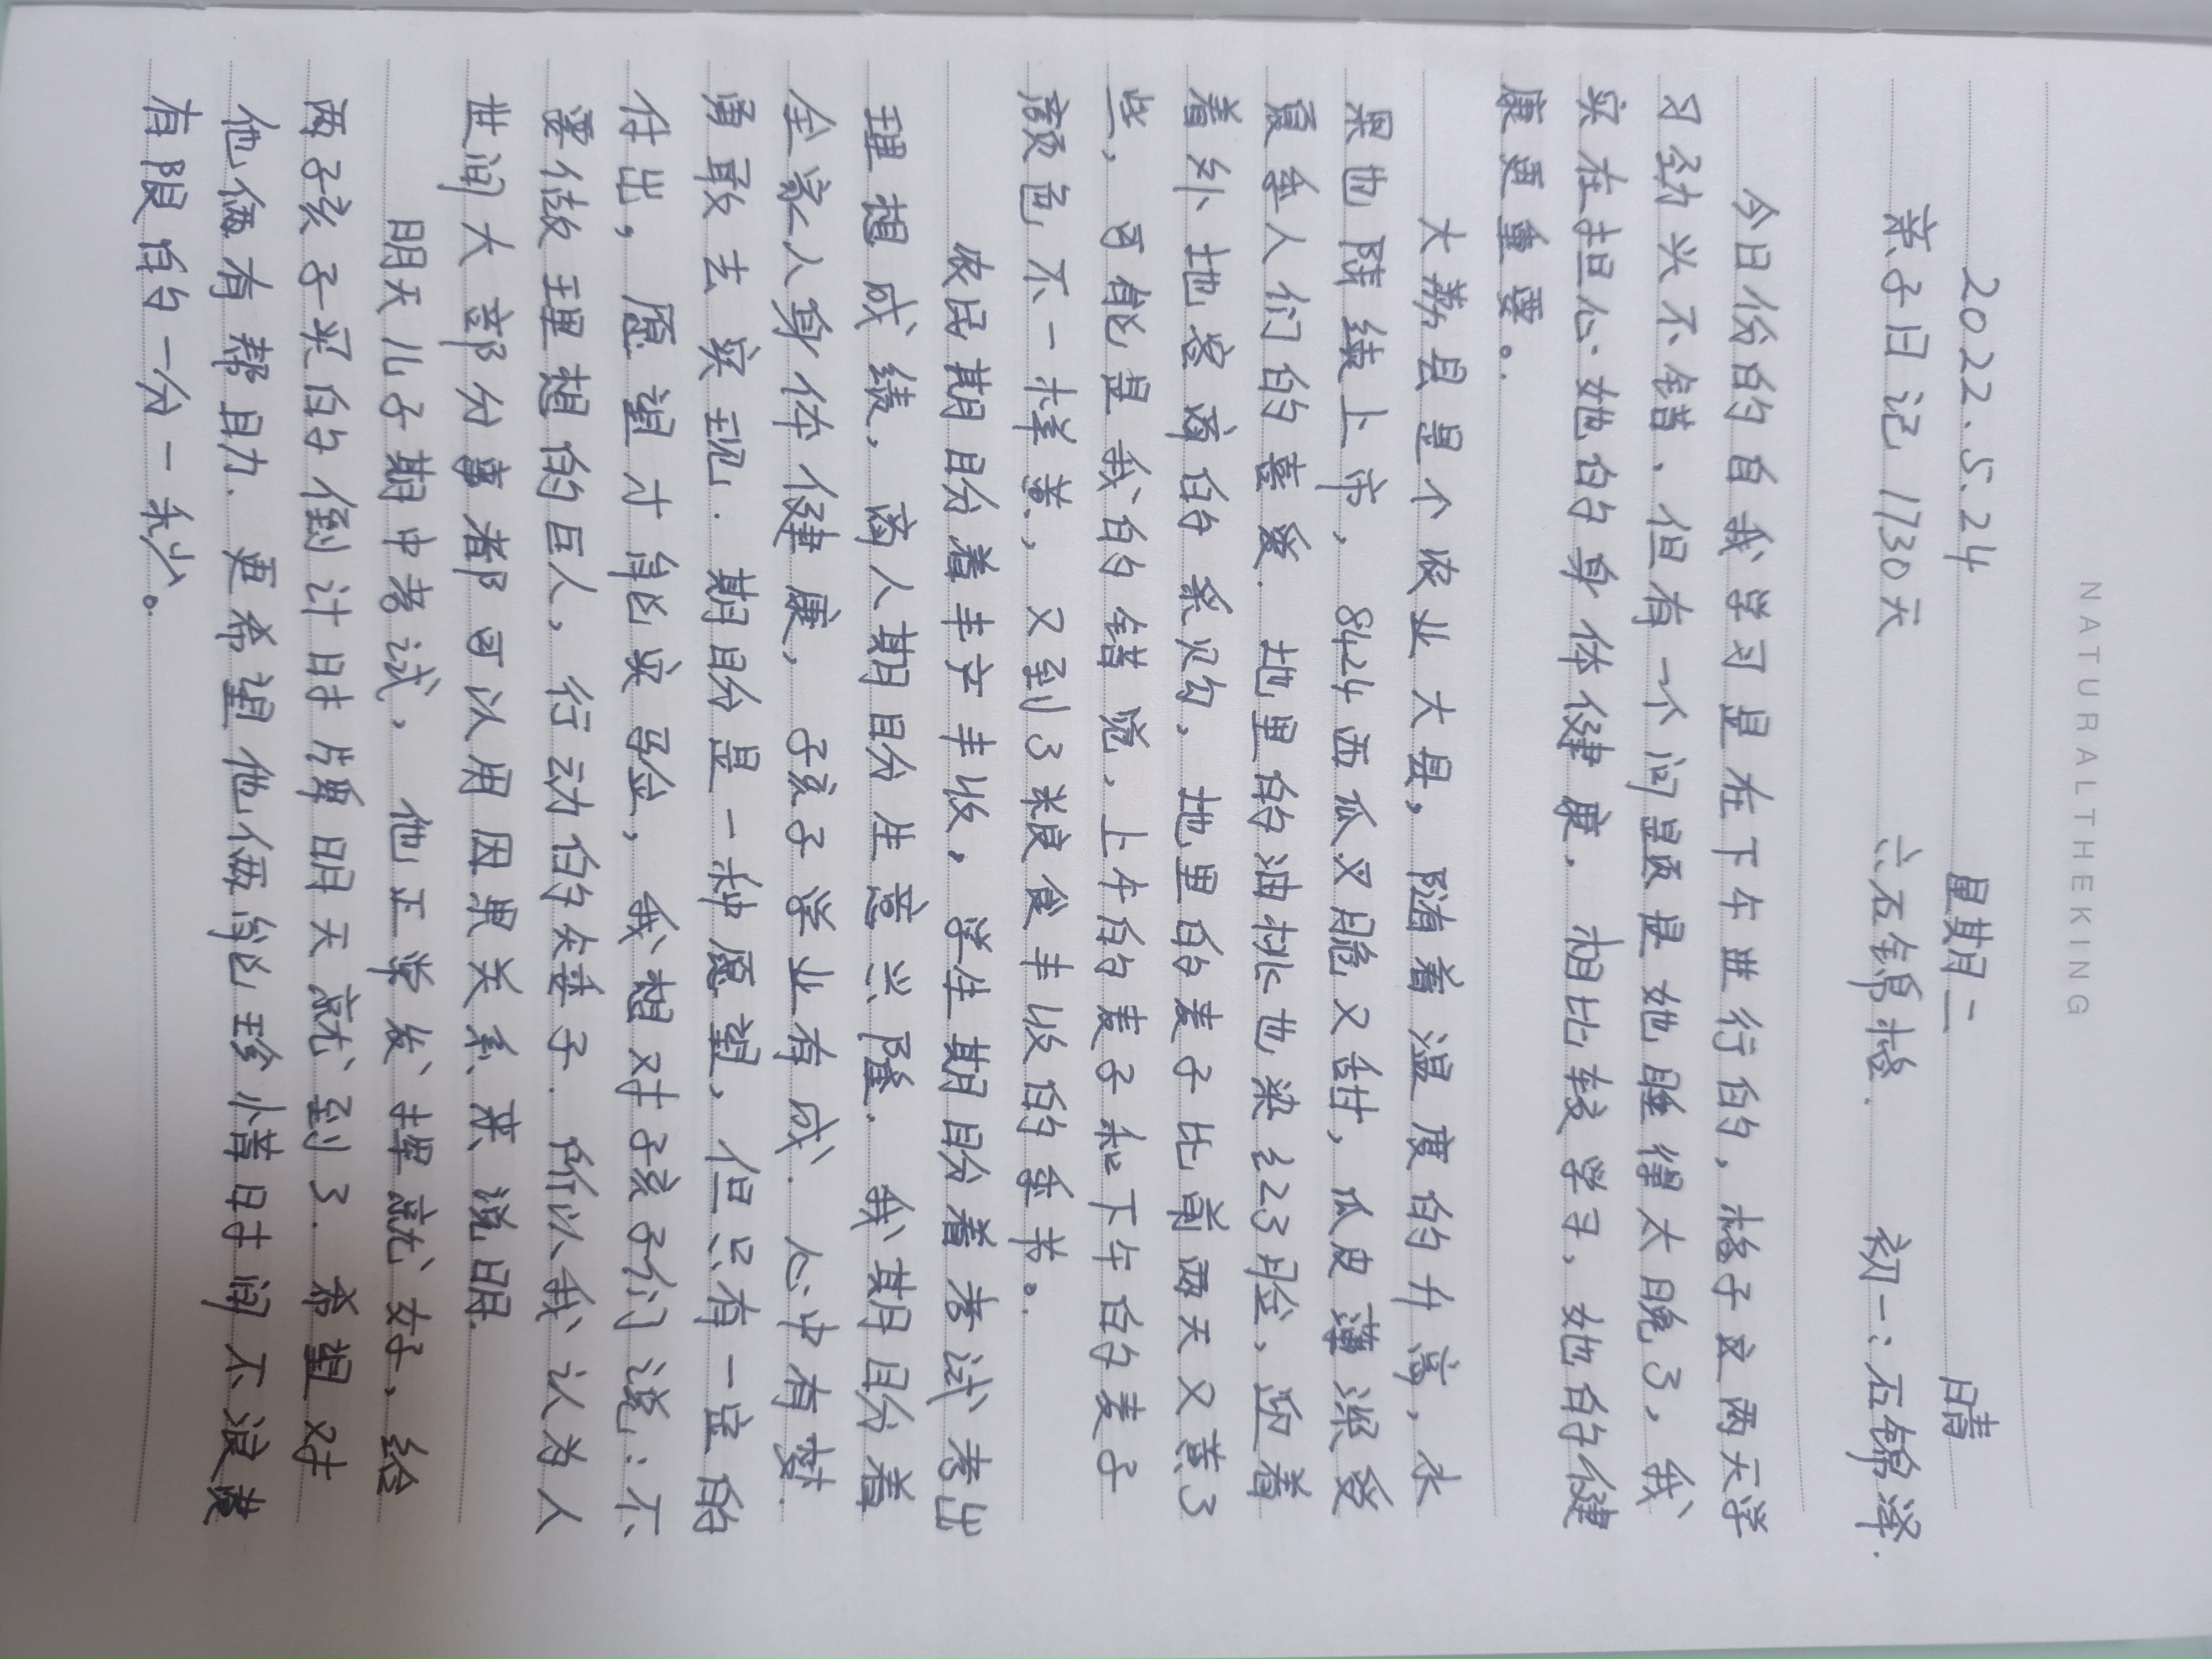 NATURALTHEKING
2022.5.24 星期二 晴
亲子日记1730天 六石锦格. 初一:石锦泽.
今日份的自我学习是在下午进行的,格子这两天学
习劲兴不错、但有一个问题是她睡得太晚了,我
实在担心她的身体健康. 相比较学习,她的健
康更重要。
大荔县是个农业大县,随着温度的升高,水
果也陆续上市,8424西瓜又脆又甜,瓜皮薄深受
夏季人们的喜爱. 地里的油桃也染红了脸、迎着
着外地客商的采购,地里的麦子比前两天又黄了
些,可能是我的错觉,上午的麦子和下午的麦子
颜色不一样黄,又到了粮食丰收的季节。
农民期盼着丰产丰收,学生期盼着考试考出
理想成绩,商人期盼生意兴隆. 我期盼着
全家人身体健康,孩子学业有成. 心中有梦.
勇敢去实现. 期盼是一种愿望,但只有一定的
付出,愿望才能实写金,我想对孩子们说:不
要做理想的巨人,行动的矮子. 所以我认为人
世间大部分事都可以用因果关系来说明.
明天儿子期中考试,他正常发挥就好、给
两孩子买的倒计时牌明天就到了. 希望对
他俩有帮助. 更希望他俩能珍惜时间不浪费
有限的一分一秒。